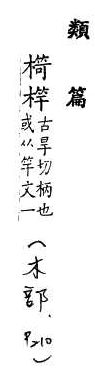 類篇
古旱切柄也
或从竿文一
(木部, P210)